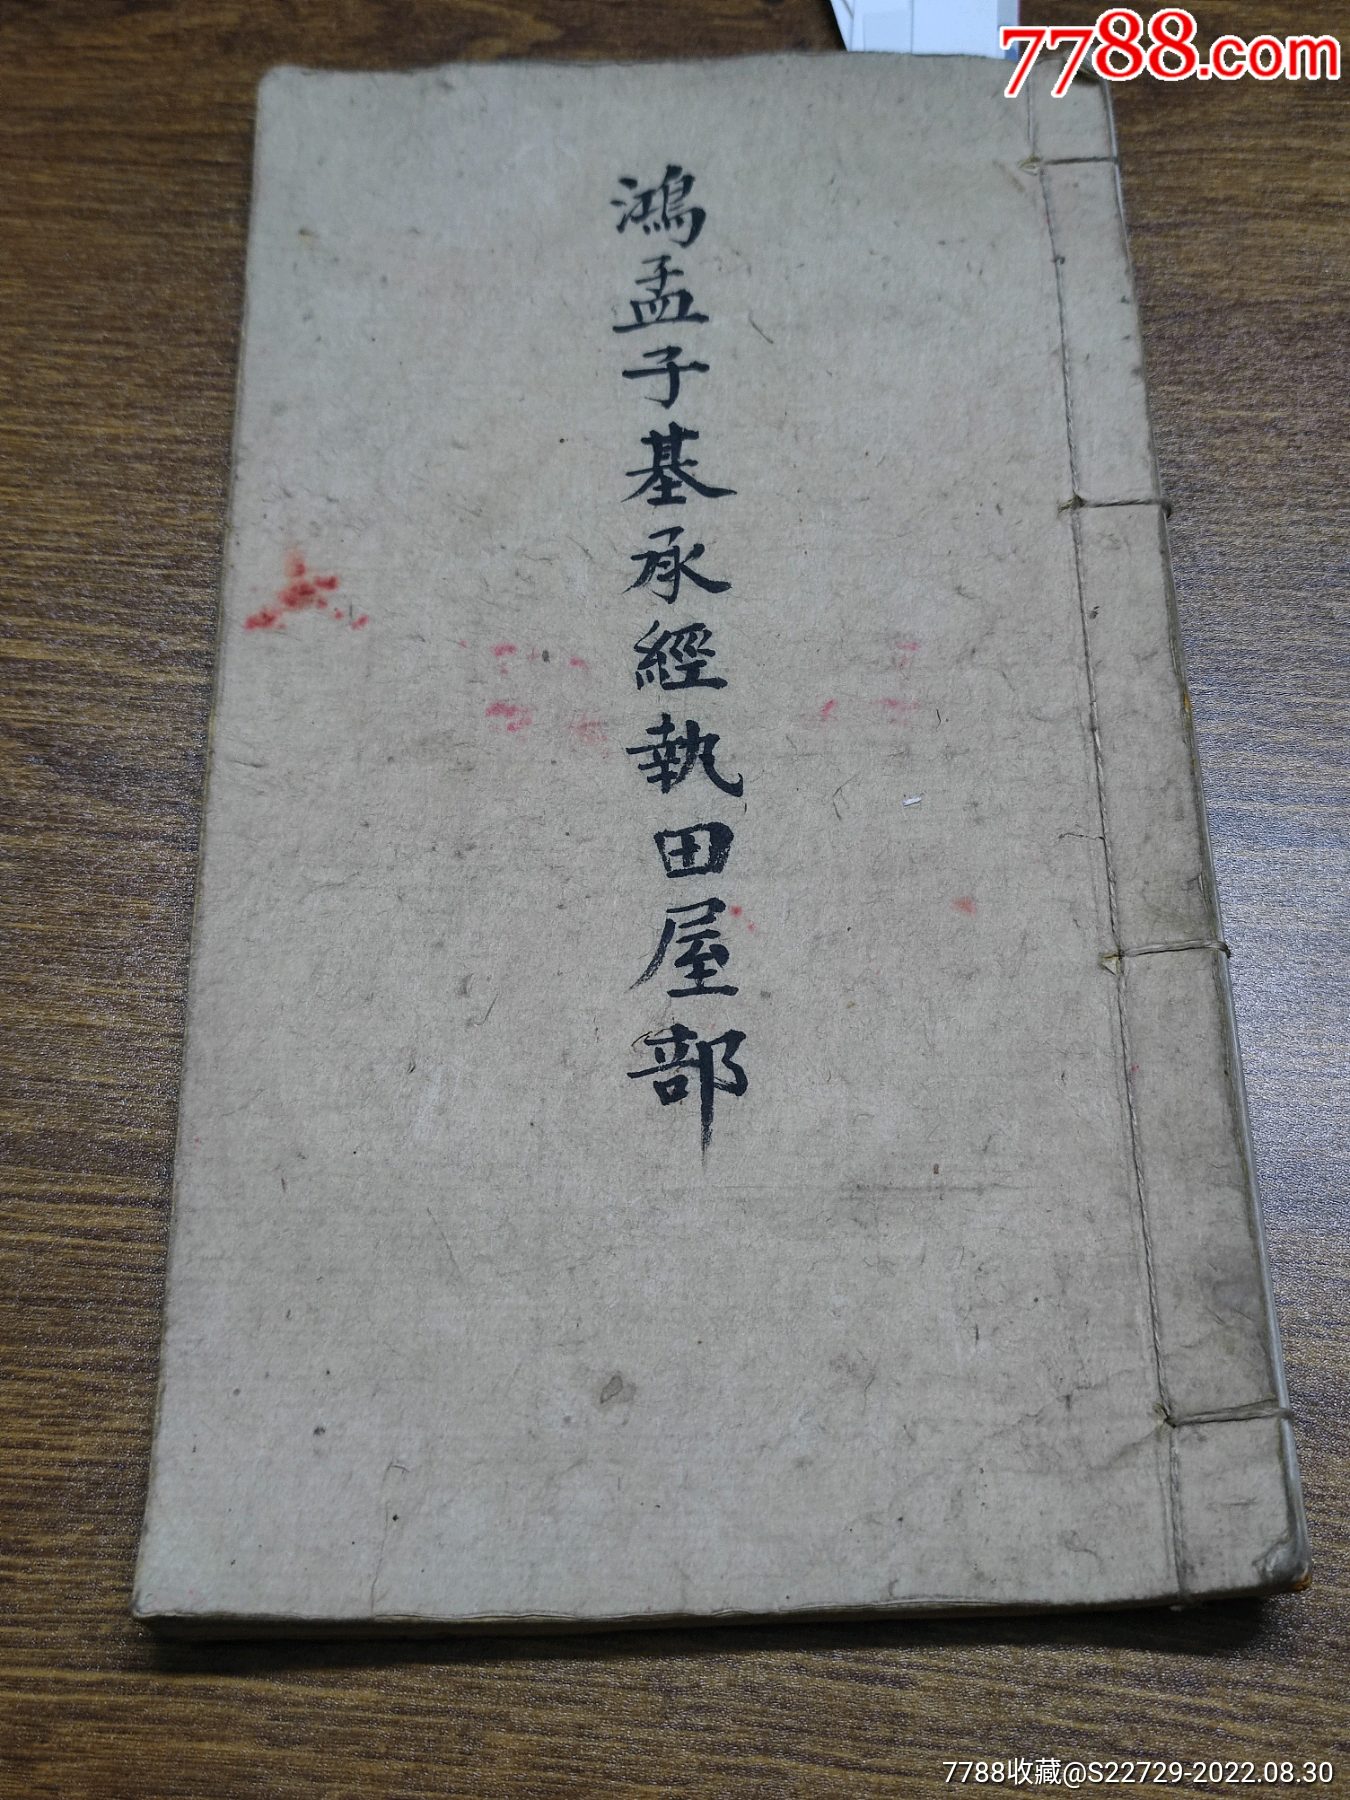 7788.com
鴻孟子基承經執田屋部
7788收藏@S22729-2022.08.30